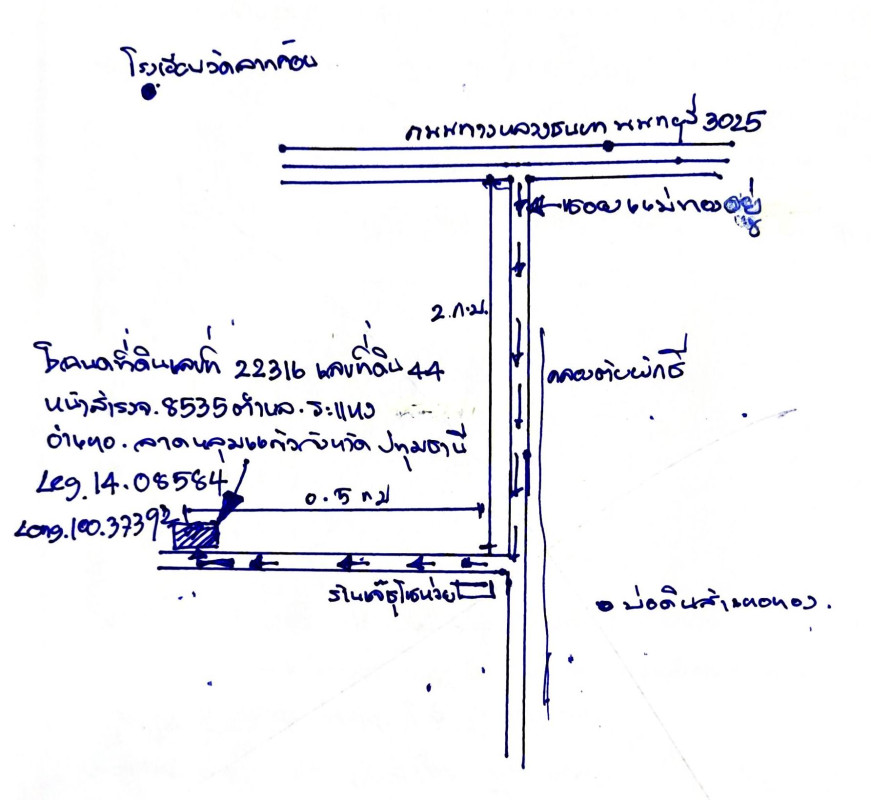 โรงเรียนวัดลาดค้อย
ถนนทางหลวงชนบท นนทบุรี 3025
ซอยแม่ทองอยู่
2.ก.ม.
โฉนดที่ดินเลขที่ 22316 เลขที่ดิน 44
หน้าสำรวจ.8535 ตำบล.ระแหง
อำเภอ.ลาดหลุมแก้วจังหวัด ปทุมธานี
Leg.14.08584
0.5 กม
Long.100.37392
ร้านเจ๊ตุโชห่วย
บ่อดินส้านทอทอง.